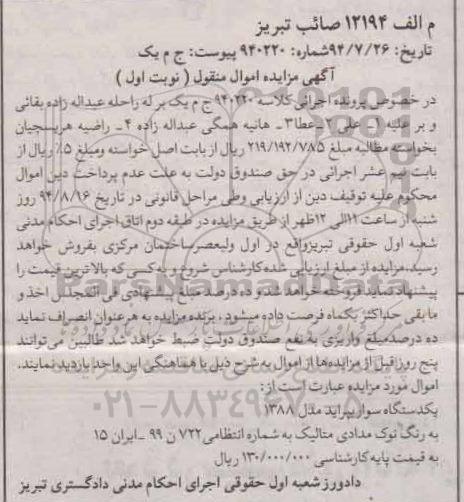 م الف ۱۲۱۹۴ صائب تبریز
تاریخ: ۹۴/۷/۲۶شماره: ۹۴۰۲۲۰ پیوست: ج م یک
آگهی مزایده اموال منقول ( نوبت اول )
در خصوص پرونده اجرائی کلاسه ۹۴۰۲۲۰ ج م یک بر له راحله عبداله زاده بقائی
و بر علیه ۱_ علی ۲_عطا۳_ هانیه همگی عبداله زاده ۴_ راضیه هریسچیان
بخواسته مطالبه مبلغ ۲۱۹/۱۹۲/۷۸۵ ریال از بابت اصل خواسته ومبلغ ۵٪ ریال از
بابت نیم عشر اجرائی در حق صندوق دولت به علت عدم پرداخت دین اموال
محکوم علیه توقیف دین از ارزیابی وطی مراحل قانونی در تاریخ ۹۴/۸/۱۶ روز
شنبه از ساعت ۱۱الی ۱۲ظهر از طریق مزایده در طبقه دوم اتاق اجرای احکام مدنی
شعبه اول حقوقی تبریزواقع در اول ولیعصرساختمان مرکزی بفروش خواهد
رسید،مزایده از مبلغ ارزیابی شده کارشناس شروع و به کسی که بالاترین قیمت را
پیشنهاد نماید فروخته خواهد شدو ده درصد مبلغ پیشنهادی فی المجلس اخذ و
ما بقی حداکثر یکماه فرصت داده میشود ، برنده مزایده به هر عنوان انصراف نماید
ده درصدمبلغ واریزی به نفع صندوق دولت ضبط خواهد شد طالبین می توانند
پنج روز قبل از مزایده‌ها از اموال به شرح ذیل با هماهنگی این واحد بازدید نمایند،
اموال مورد مزایده عبارت است از:
یکدستگاه سواریپراید مدل ۱۳۸۸
به رنگ نوک مدادی متالیک به شماره انتظامی ۷۲۲ ن ۹۹ _ایران ۱۵
به قیمت پایه کارشناسی ۱۳۰/۰۰۰/۰۰۰ ریال
دادورز شعبه اول حقوقی اجرای احکام مدنی دادگستری تبریز
ParsNamadData
۰۲۱-۸۸۳۴۹۶۷۰-۵